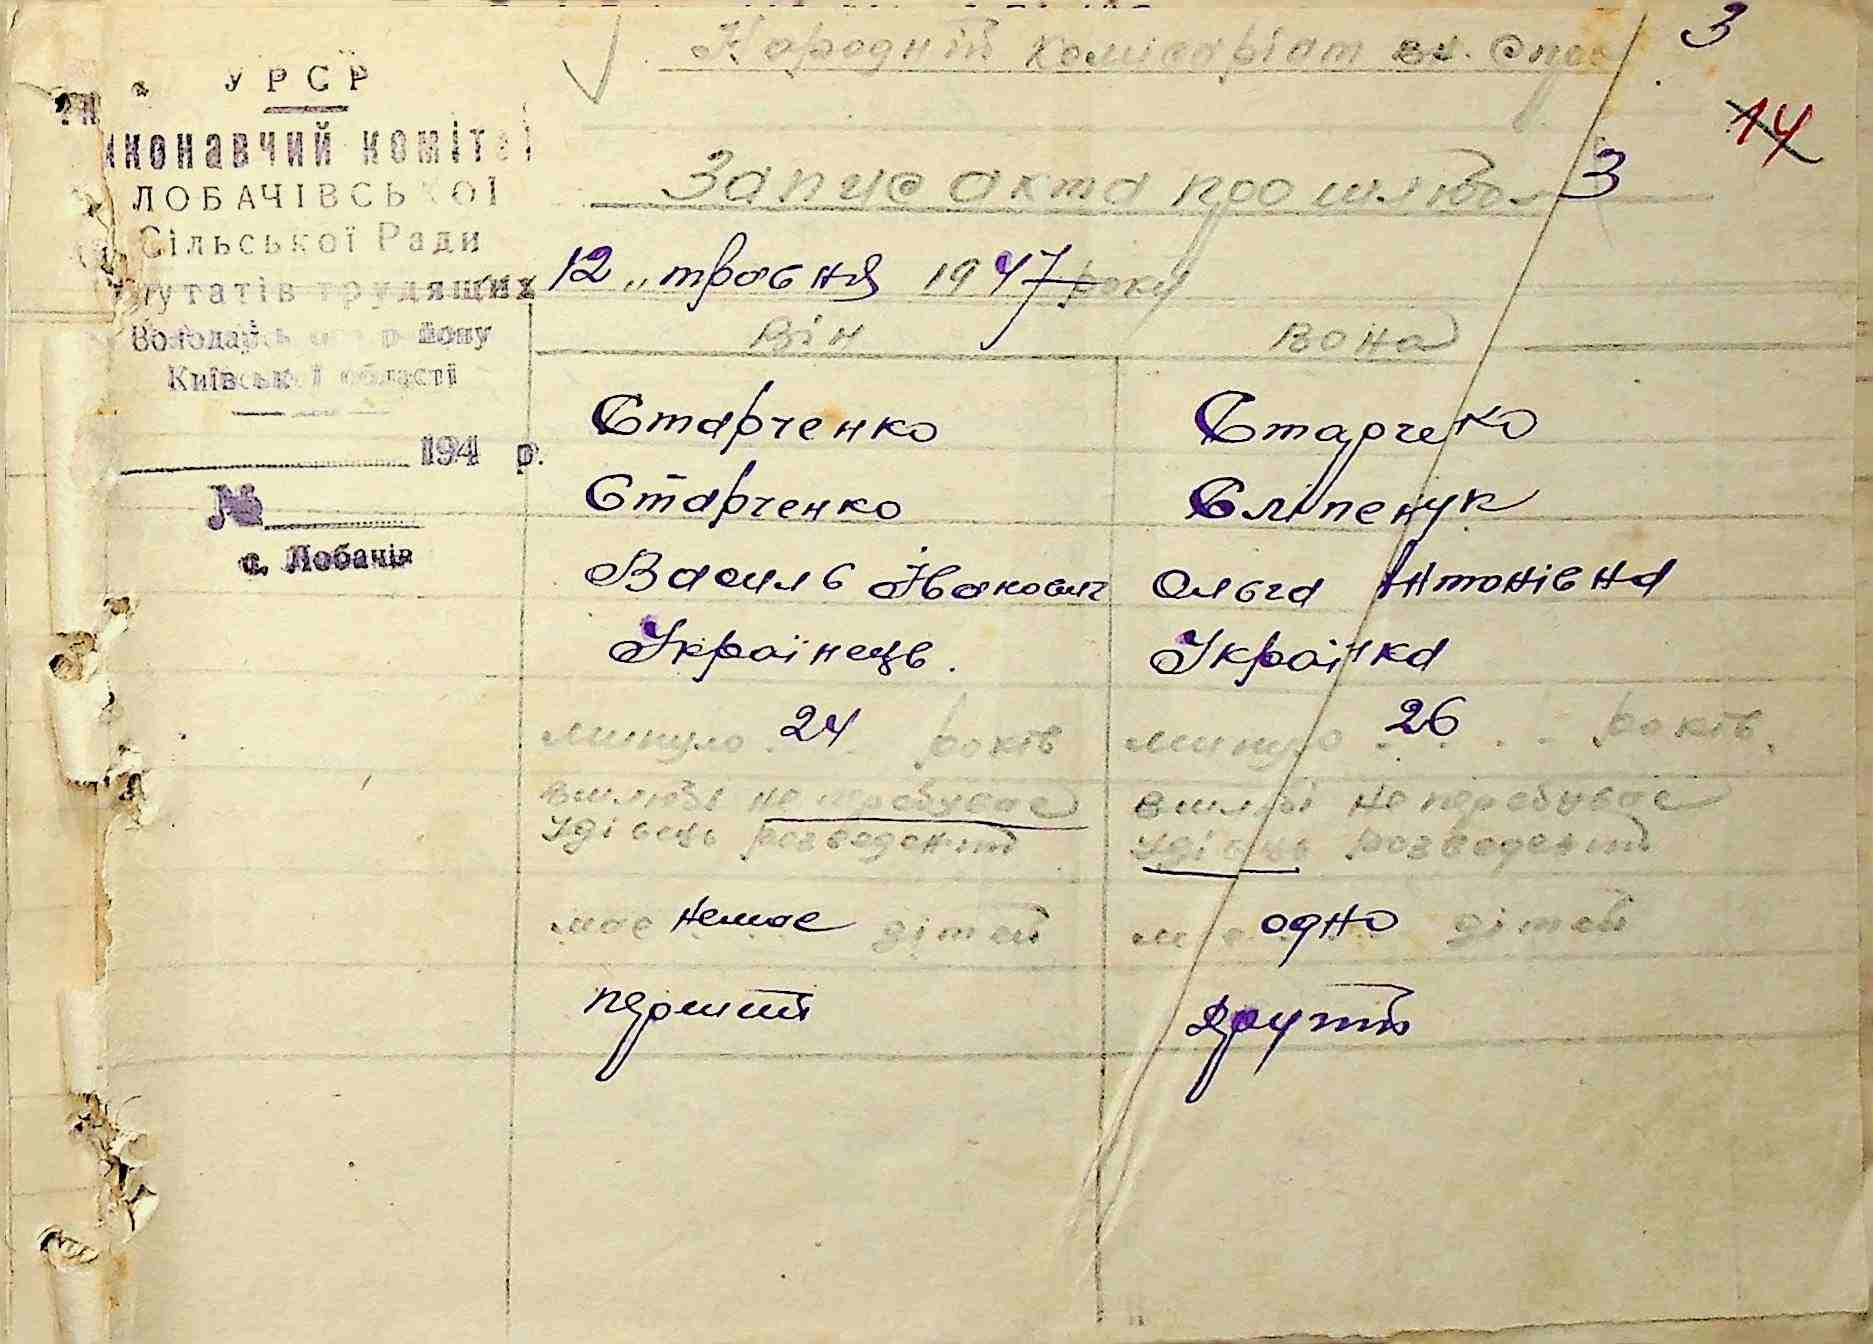 Народній комісаріат вн. Спра
3
14
УРСР
иконавчий комітет
ЛОБАЧІВСЬКОЇ
Сільської Ради
путатів трудящих
Володарського району
Київської області
194 р.
№
с. Лобачів
Запис акта про шлюб 3
12 „ травня 1947 року
він вона
Старченко Старчеко
Старченко Сліпенчук
Василь Іванович Ольга Антонівна
Українець. Українка
минуло 24 років минуло 26 років.
в шлюбі не перебував в шлюбі не перебував
удівець розведений удівець розведений
має немає дітей має одно дітей
перший другий